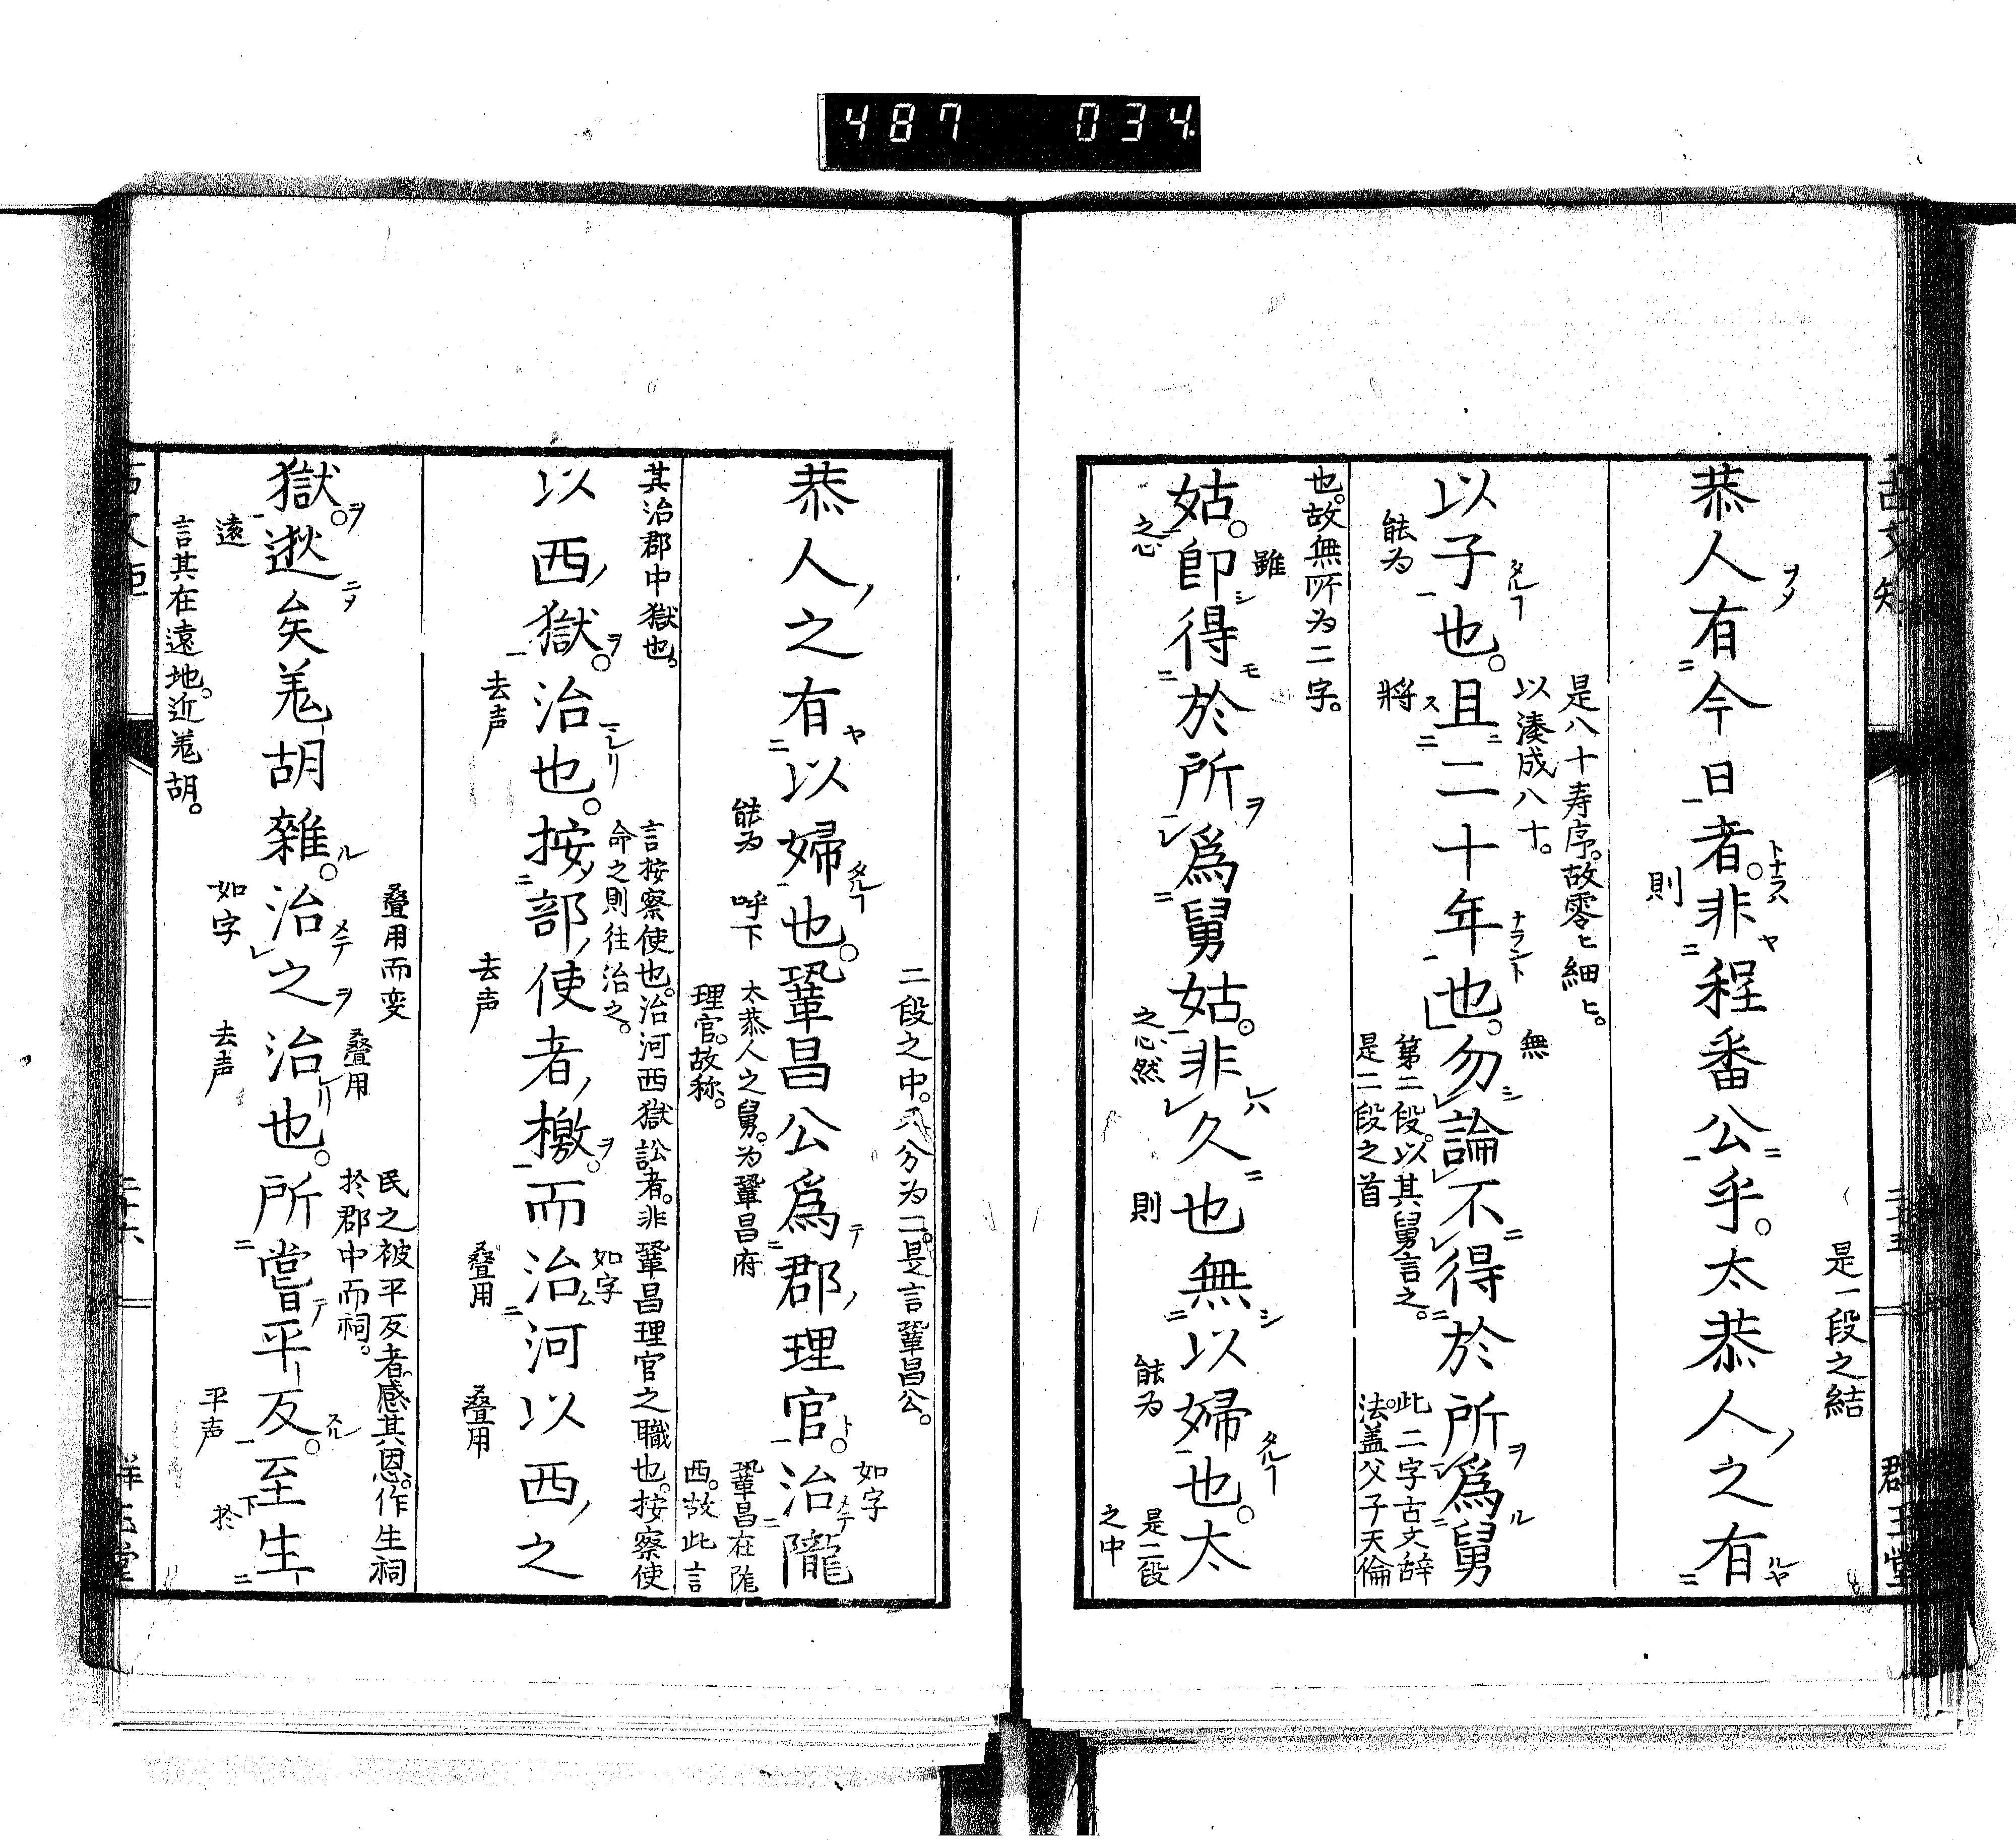 487 034
古文矩
二十五
群玉堂
是一段之結
恭人有今日者。非程番公乎。太恭人之有
ヲノ
トナスハ
ヤ
ニ
ルヤ
則
是八十寿序。故零ヒ細ヒ。
以湊成八十。
以子也。且二十年也。勿論不得於所爲舅
タルヿ
ナラント
無
能为
將
第二段。以其舅言之。
是二段之首
此二字古文辞
法。盖父子天倫
也。故無所为二字。
姑。即得於所爲舅姑。非久也無以婦也。太
雖
之心
之心然
則
能为
タルヿ
是二段
之中
二段之中。又分为二。是言鞏昌公。
恭人之有以婦也。鞏昌公爲郡理官。治隴
ヤ
タルヿ
如字
能为
呼下
太恭人之舅。为鞏昌府
理官。故称。
鞏昌在隴
西。故此言
其治郡中獄也。
以西獄。治也。按部使者檄而治河以西之
去声
言按察使也。治河西獄訟者。非鞏昌理官之職也。按察使
命之則往治之。
去声
如字
疊用
疊用
疊用而变
獄。逖矣羌胡雜。治之治也。所嘗平反。至生
遠
如字
去声
疊用
民之被平反者。感其恩。作生祠
於郡中而祠。
平声
於
言其在遠地。近羌胡。
古文矩
二十六
群玉堂